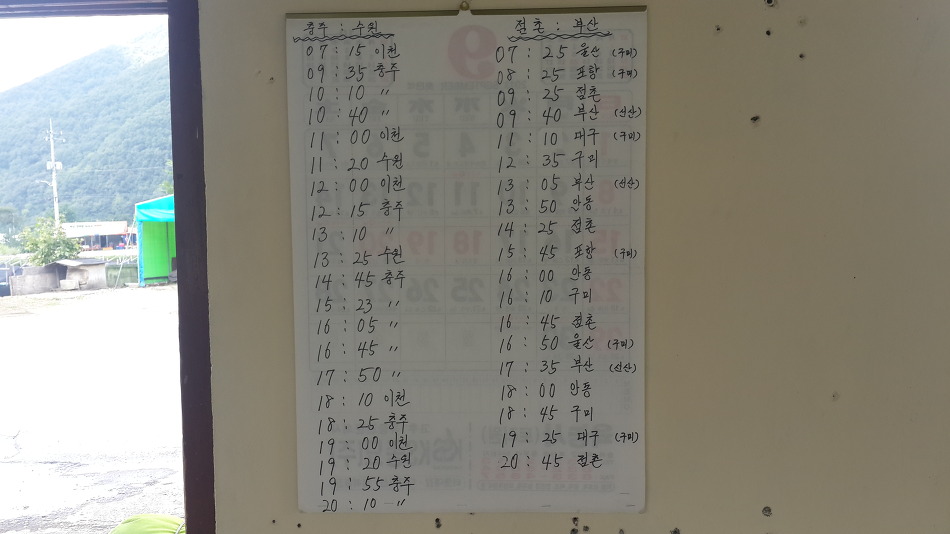 충주 : 수원
07 : 15 이천
09 : 35 충주
10 : 10 〃
10 : 40 〃
11 : 00 이천
11 : 20 수원
12 : 00 이천
12 : 15 충주
13 : 10 〃
13 : 25 수원
14 : 45 충주
15 : 23 〃
16 : 05 〃
16 : 45 〃
17 : 50 〃
18 : 10 이천
18 : 25 충주
19 : 00 이천
19 : 20 수원
19 : 55 충주
20 : 10 〃
점촌 : 부산
07 : 25 울산 (구미)
08 : 25 포항 (구미)
09 : 25 점촌
09 : 40 부산 (신산)
11 : 10 대구 (구미)
12 : 35 구미
13 : 05 부산 (신산)
13 : 50 안동
14 : 25 점촌
15 : 45 포항 (구미)
16 : 00 안동
16 : 10 구미
16 : 45 점촌
16 : 50 울산 (구미)
17 : 35 부산 (신산)
18 : 00 안동
18 : 45 구미
19 : 25 대구 (구미)
20 : 45 점촌